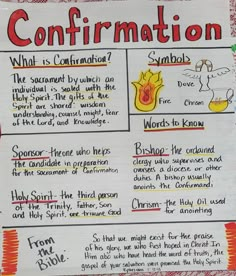 Confirmation
What is Confirmation?
The sacrament by which an
individual is sealed with the
Holy Spirit. The gifts of the
Spirit are shared: wisdom
understanding, counsel, might, fear
of the Lord, and knowledge.
Symbols
Dove
Fire
Chrism
Words to Know
Sponsor - the one who helps
the candidate in preparation
for the sacrament of Confirmation
Bishop - the ordained
clergy who supervises and
oversees a diocese or other
duties. A bishop usually
anoints the Confirmandi
Holy Spirit - the third person
of the Trinity, Father, Son
and Holy Spirit, one triune God
Chrism - the Holy Oil used
for anointing
From
the
Bible:
So that we might exist for the praise
of his glory, we who first hoped in Christ. In
Him also who have heard the word of truth, the
gospel of your salvation were promised the Holy Spirit.